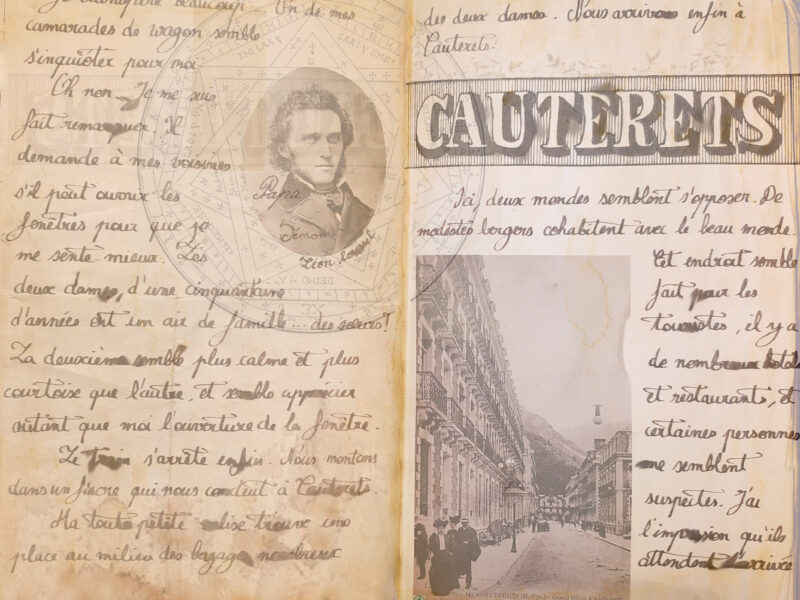 je transpire beaucoup... Un de mes
camarades de wagon semble
s'inquiéter pour moi.
Oh non. Je me suis
fait remarquer. Il
demande à mes voisines
s'il peut ouvrir les
fenêtres pour que je
me sente mieux. Les
deux dames, d'une cinquantaine
d'années ont un air de famille... des sœurs!
La deuxième semble plus calme et plus
courtoise que l'autre, et semble apprécier
autant que moi l'ouverture de la fenêtre.
Le train s'arrête enfin. Nous montons
dans un fiacre qui nous conduit à Cauterets.
Ma toute petite valise trouve une
place au milieu des bagages nombreux
Papa
Démon
des deux dames. Nous arrivons enfin à
Cauterets.
CAUTERETS
Ici, deux mondes semblent s'opposer. De
modestes bergers cohabitent avec le beau monde.
Cet endroit semble
fait pour les
touristes, il y a
de nombreux hotels
et restaurants, et
certaines personnes
me semblent
suspectes. J'ai
l'impression qu'ils
attendent l'arrivée
CAUTERETS